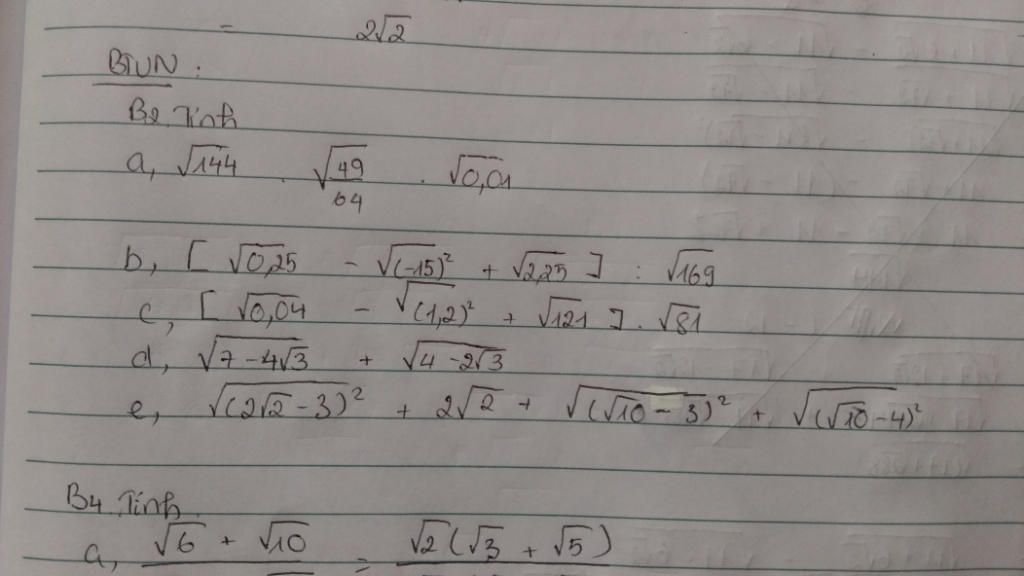 = 2√2
BTVN :
B2. Tính
a, √144 . √(49/64) . √0,01
b, [ √0,25 - √(-15)² + √2,25 ] : √169
c, [ √0,04 - √(1,2)² + √121 ] . √81
d, √(7 - 4√3) + √(4 - 2√3)
e, √(2√2 - 3)² + 2√2 + √(√10 - 3)² + √(√10 - 4)²
B4. Tính
a, √6 + √10 = √2(√3 + √5)